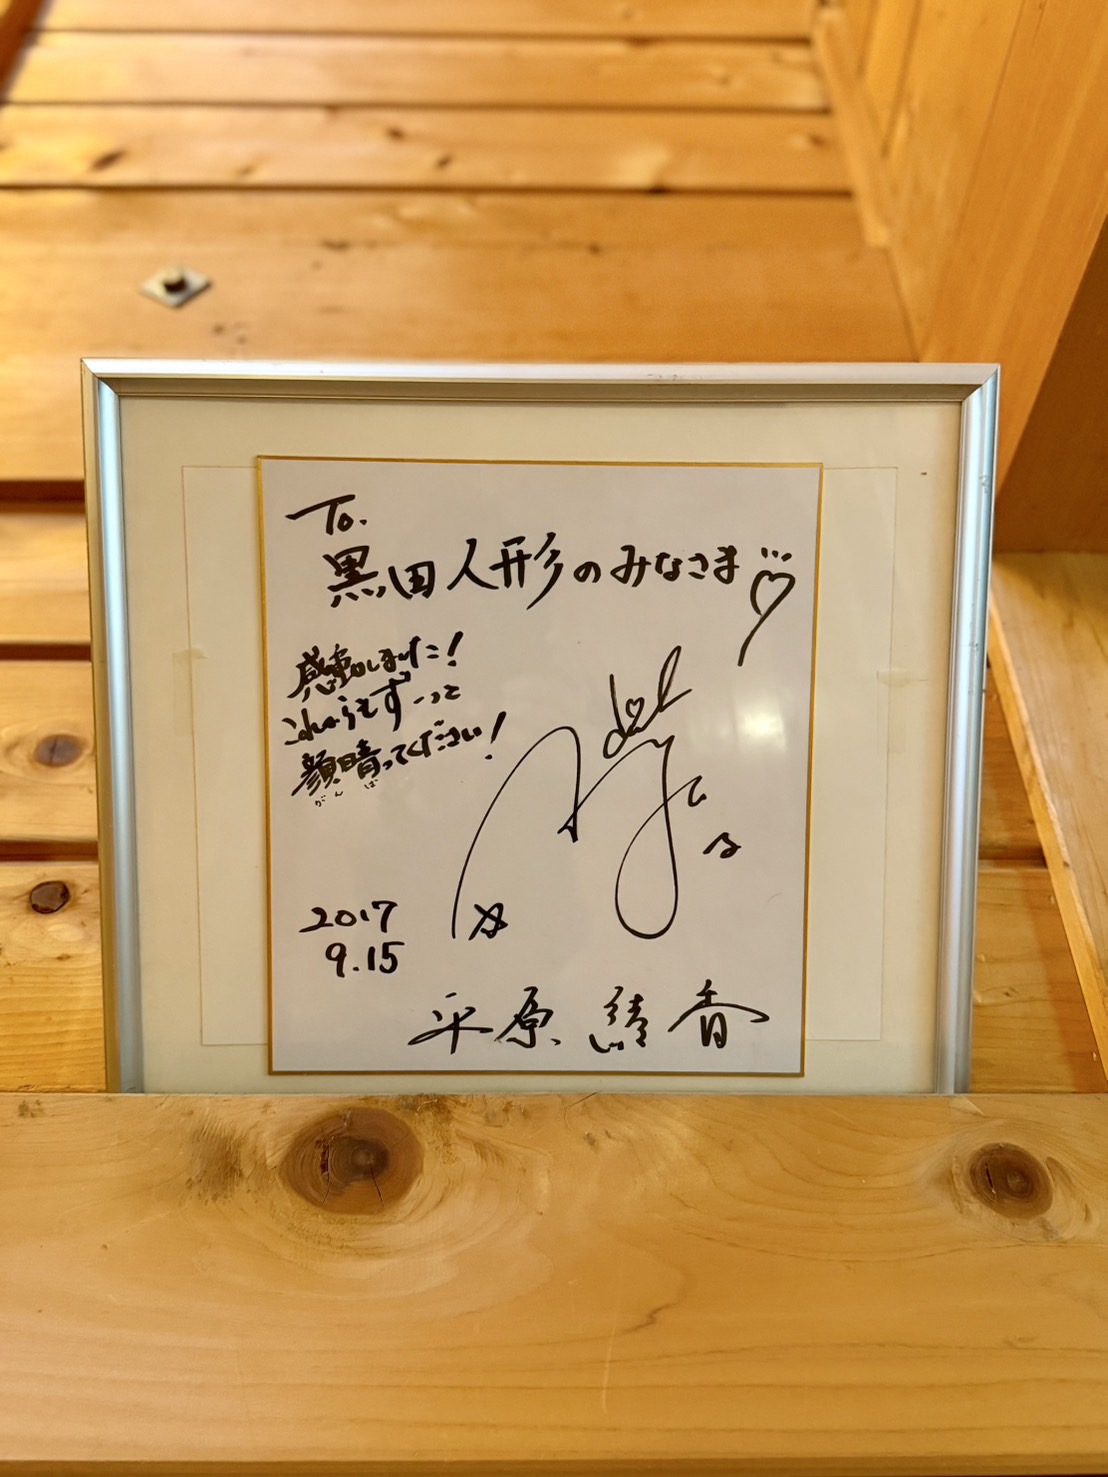 To.
黒田人形のみなさま♡
感動しました!
これからもずーっと
顔晴ってください!
がんば
2017
9.15
平原 綾香